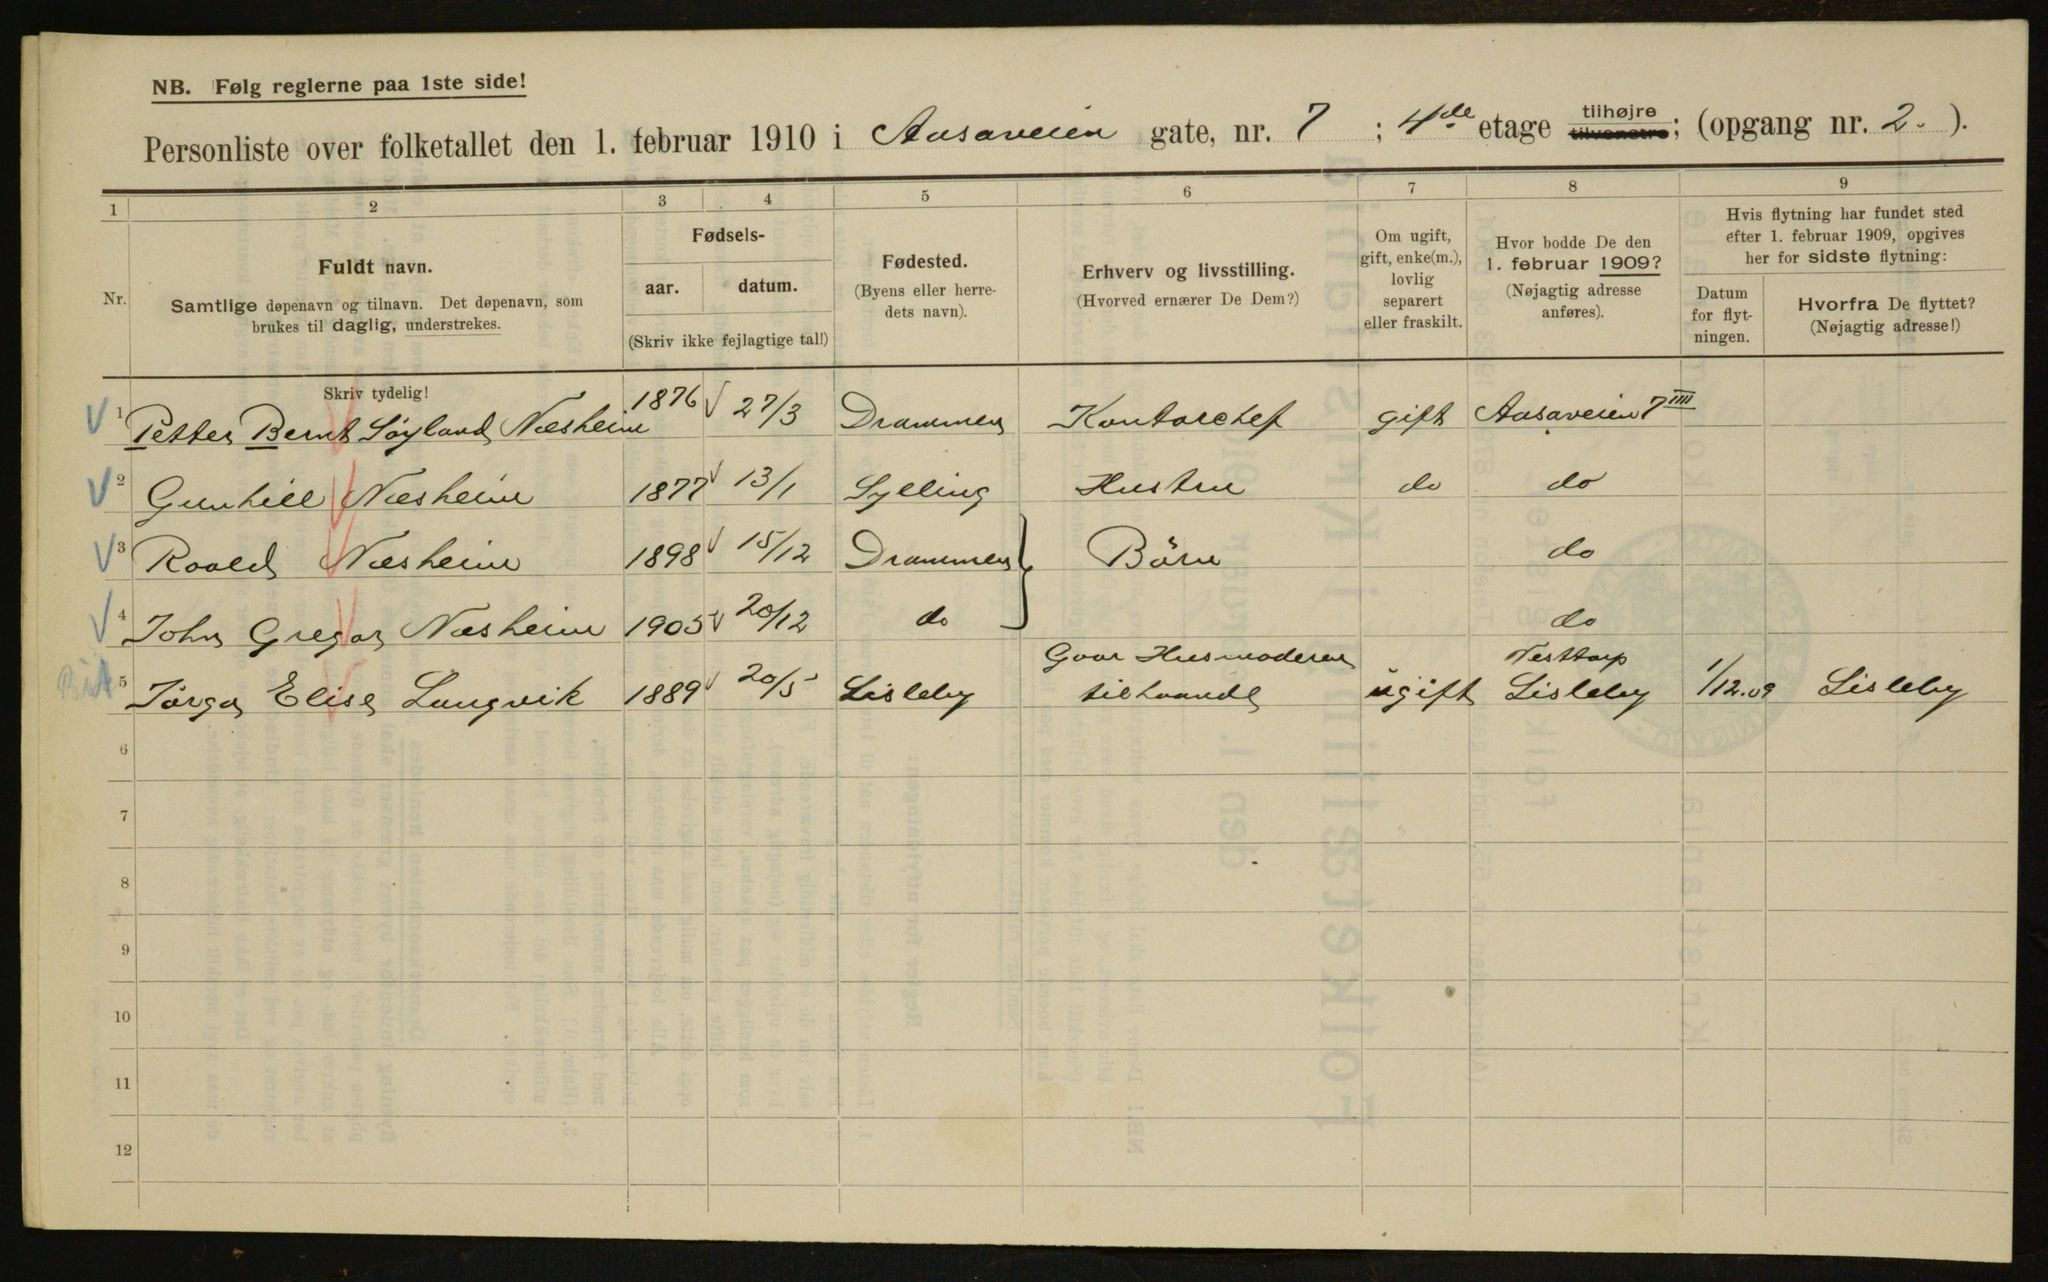 NB. Følg reglerne paa 1ste side!
Personliste over folketallet den 1. februar 1910 i Aasaveien gate, nr. 7 ; 4de etage tilhøjre tilvenstre; (opgang nr. 2. ).
1 2 3 4 5 6 7 8 9
Nr.
Fuldt navn.
Samtlige døpenavn og tilnavn. Det døpenavn, som
brukes til daglig, understrekes.
Fødsels-
aar. datum.
(Skriv ikke fejlagtige tal!)
Fødested.
(Byens eller herre-
dets navn).
Erhverv og livsstilling.
(Hvorved ernærer De Dem?)
Om ugift,
gift, enke(m.),
lovlig
separert
eller fraskilt.
Hvor bodde De den
1. februar 1909?
(Nøjagtig adresse
anføres).
Hvis flytning har fundet sted
efter 1. februar 1909, opgives
her for sidste flytning:
Datum
for flyt-
ningen.
Hvorfra De flyttet?
(Nøjagtig adresse!)
Skriv tydelig!
1 Petter Bernt Søyland Næsheim 1876 27/3 Drammen Kontorchef gift Aasaveien 7 IIII
2 Gunhild Næsheim 1877 13/1 Sylling Hustru do do
3 Roald Næsheim 1898 15/12 Drammen Börn do
4 John Gregar Næsheim 1905 20/12 do do
5 Jörga Elise Langvik 1889 20/5 Lisleby Gaar Husmoderen tilhaande ugift Nesttorp Lisleby 1/12.09 Lisleby
6
7
8
9
10
11
12